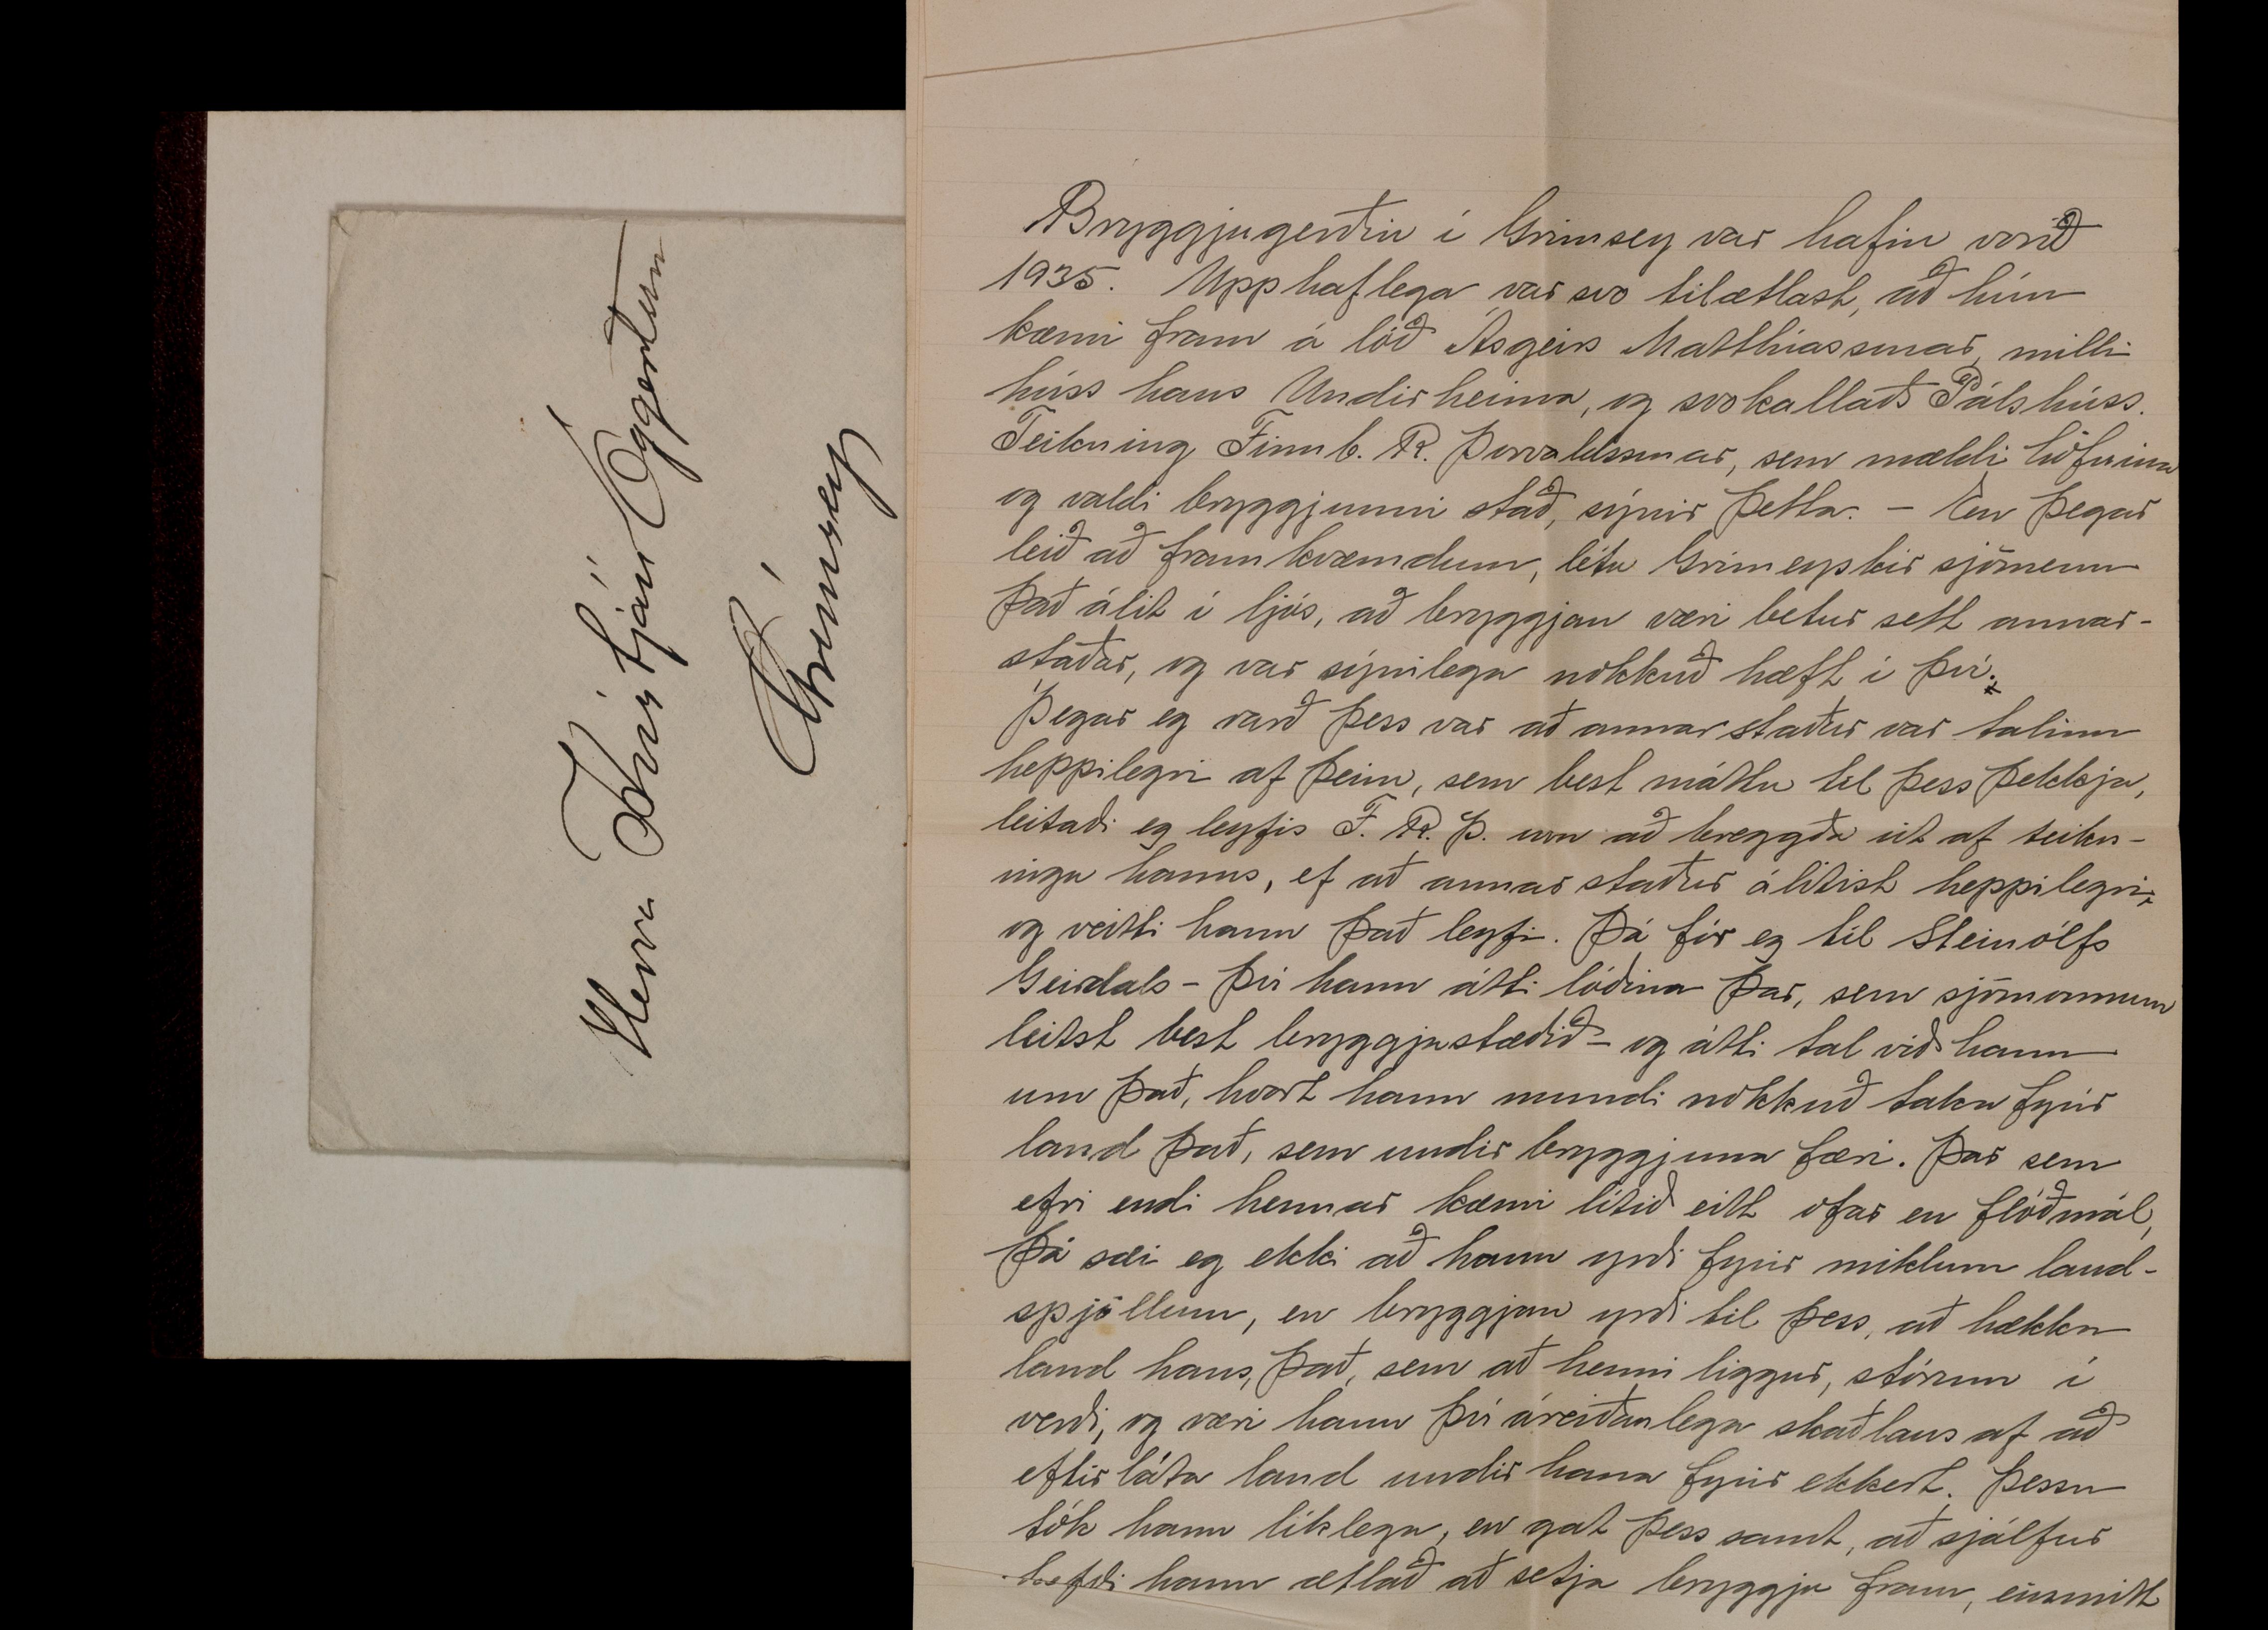 Herra Kristján Eggertsson
Grímsey
Bryggjugerðin í Grímsey var hafin vorið
1935. Upphaflega var svo tilætlast, að hún
kæmi fram á lóð Ásgeirs Matthíassonar, milli
húss hans Undirheima, og svokallaðs Pálshúss.
Teikning Finnb. R. Þorvaldssonar, sem mældi höfnina
og valdi bryggjunni stað, sýnir þetta. - En þegar
leið að framkvæmdum, létu Grímeyskir sjómenn
það álit í ljós, að bryggjan væri betur sett annar-
staðar, og var sýnilega nokkuð hæft í því.
Þegar eg varð þess var að annar staður var talinn
heppilegri af þeim, sem best máttu til þess þekkja,
leitaði eg leyfis F. R. Þ. um að bregða út af teikn-
ingu hanns, ef að annar staður álitist heppilegri,
og veitti hann það leyfi. Þá fór eg til Steinólfs
Geirdals - því hann átti lóðina þar, sem sjómonnum
leitst best bryggjustæðið - og átti tal við hann
um það, hvort hann mundi nokkuð taka fyrir
land það, sem undir bryggjuna færi. Þar sem
efri endi hennar kæmi lítið eitt ofar en flóðmál,
þá sæi eg ekki að hann yrði fyrir miklum land-
spjöllum, en bryggjan yrði til þess, að hækka
land hans, það, sem að henni liggur, stórum í
verði, og væri hann því áreiðanlega skaðlaus af að
eftirláta land undir hana fyrir ekkert. Þessu
tók hann líklega, en gat þess samt, að sjálfur
hefði hann ætlað að setja bryggju fram, einmitt